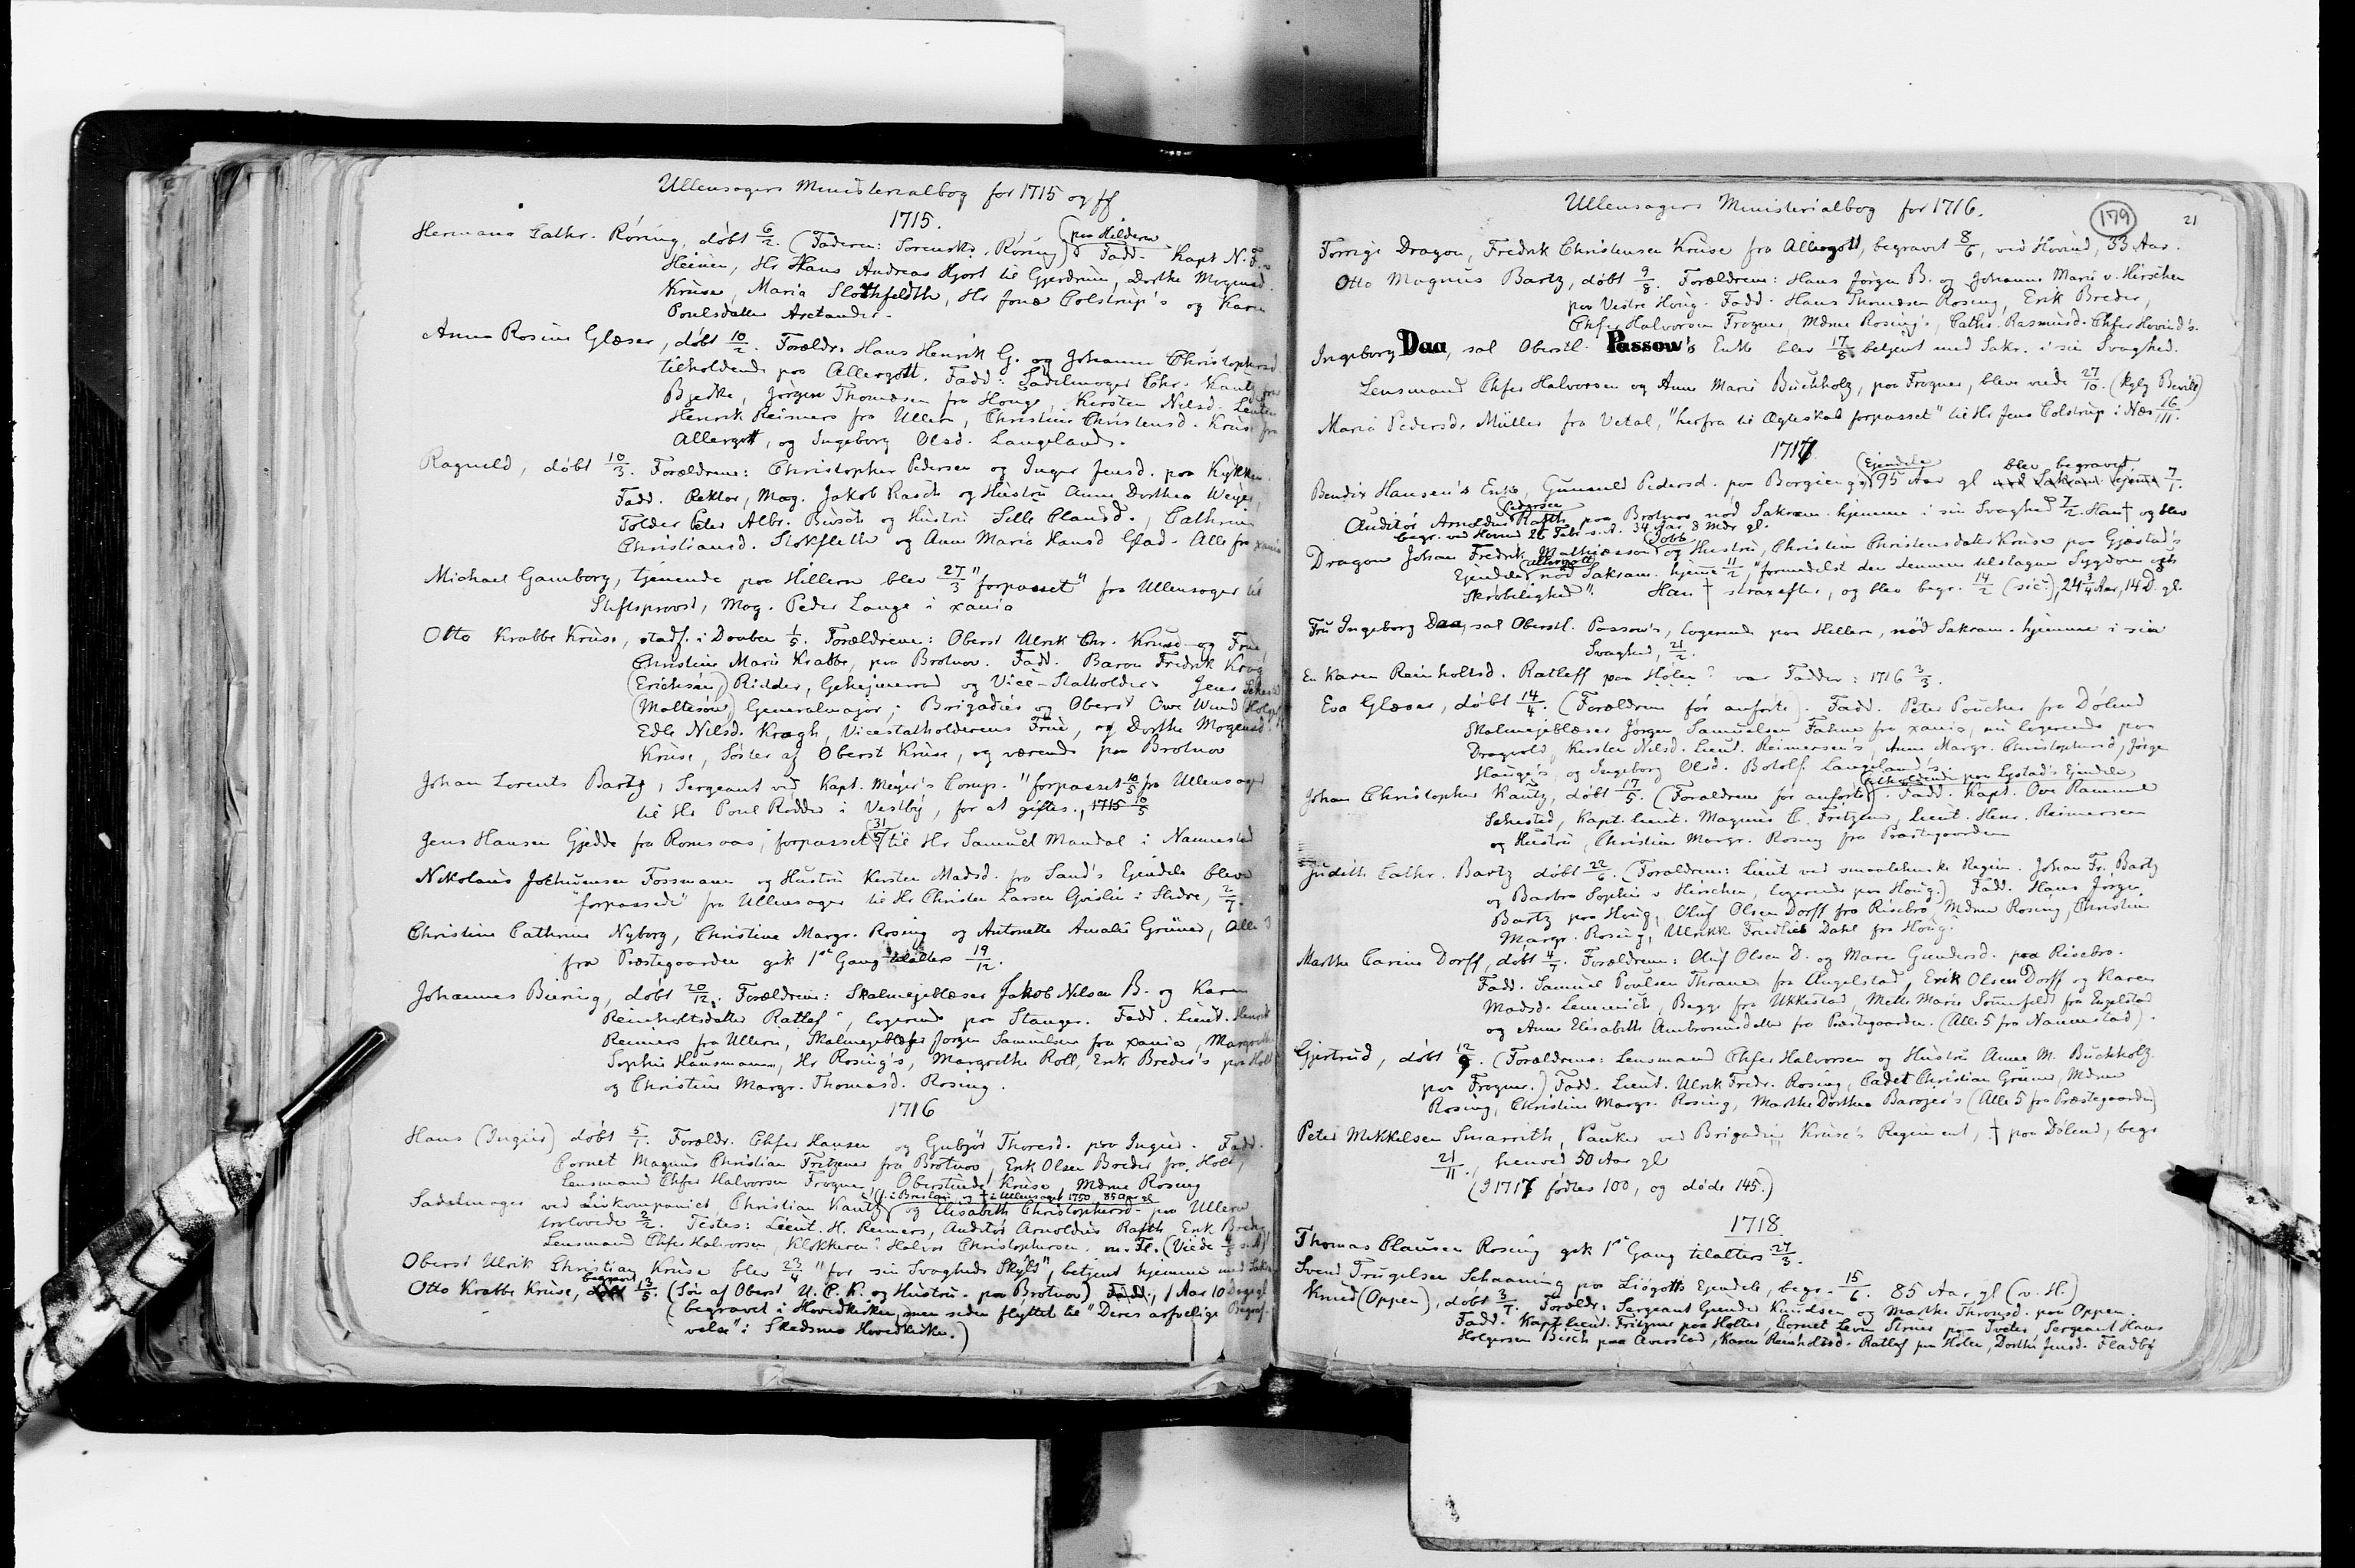 Ullensagers Ministerialbog for 1715 og ff
1715.
Hermana Cathr. Röring, döbt 6/2. (Faderen: Sorensk. Röring) (paa Hildern) Fadd. Kapt N. F.
Heinen, Hr Hans Andreas Hjort til Gjerdrum, Dorthe Mogensd.
Kruse, Maria Slothfeldth, Hr Jonæ Colstrup's og Karen
Poulsdatter Arctander.
Anna Rosine Glæser, döbt 10/2. Forældr. Hans Henrik G. og Johanne Christophersd
tilholdende paa Allergott. Fadd: Sadelmager Chr. Kautz fra
Bjerke, Jörgen Thomæsen fra Houge, Kirsten Nilsd. Leuten
Henrik Reimers fra Ullern, Christine Christensd. Kruse fra
Allergott, og Ingeborg Olsd. Langelands.
Ragnild, döbt 10/3. Forældrene: Christopher Pedersen og Inger Jensd. paa Kykken.
Fadd. Rektor, Mag. Jakob Rasch og Hustru Anne Dorthea Weyer,
Tolder Peter Albr. Busch og Hustru Sille Clausd., Cathrine
Christiansd. Stokfleth og Anne Maria Hansd Glad. Alle fra xania
Michael Gamborg, tjenende paa Hillern blev 27/3 "forpasset" fra Ullensager til
Stiftsprovst, Mag. Peder Lange i xania
Otto Krabbe Kruse, stadf. i Daaben 1/5. Forældrene: Oberst Ulrik Chr. Kruse og Frue,
Christine Marie Krabbe, paa Brotnov. Fadd. Baron Fredrik Krag
(Erichsön) Ridder, Gehejmeraad og Vice-Statholder. Jens Sehested
(Maltesön) Generalmajor; Brigadier og Oberst Owe Wind (Holgers
Edle Nilsd. Kragh, Vicestatholderens Frue, og Dorthe Mogensd.
Kruse, Söster af Oberst Kruse, og værende paa Brotnov
Johan Lorents Bartz, Sergeant ved Kapt. Meyer's Comp. "forpasset" 10/5 fra Ullensager
til Hr Poul Rodder i Vestby, for at giftes., 1715 10/5
Jens Hansen Gjedde fra Romsaas, forpasset (31/5) til Hr Samuel Mandal i Nannestad
Nikolaus Jochumsen Fossmann og Hustru Kirsten Madsd. fra Sand's Ejendele bleve
"forpassede" fra Ullensager til Hr Christen Larsen Gvislin i Slidre, 2/7.
Christine Cathrine Nyborg, Christine Margr. Rosing og Antonette Amalie Grüner, Alle 3
fra Præstegaarden gik 1ste Gang tilalters 19/12.
Johannes Biering, döbt 20/12. Forældrene: Skalmejeblæser Jakob Nilsen B. og Karen
Reinholtsdatter Ratlef, logerende paa Stanger. Fadd. Lieut. Henrik
Reimers fra Ullern, Skalmejeblæser Jörgen Samuelsen fra xania, Margrethe
Sophie Hausmann, Hr Rosing's, Margrethe Roll, Erik Breder's paa Holt
og Christine Margr. Thomasd. Rosing.
1716
Hans (Ingier) döbt 5/1. Forældr. Chfer Hansen og Gubjör Thoresd. paa Ingier. Fadd.
Cornet Magnus Christian Fritzner fra Brotnov, Erik Olsen Breder fra Holt,
Lensmand Chfer Halvorsen Frogner, Oberstinde Kruse, Mdme Rosing
Sadelmager ved Livkompaniet, Christian Kautz (f. i Breslau og † i Ullensager 1750, 85 Aar gl) og Elisabeth Christophersd. paa Ullern
trolovede 2/2. Testes: Lieut. H. Reimers, Auditör Arnoldus Rafth, Erik Breder
Lensmand Chfer Halvorsen, Klokkeren? Halvor Christophersen. m. Fl. (Viede
Oberst Ulrik Christian Kruse blev 23/4 "for sin Svagheds Skyld", betjent hjemme med Sakr.
Otto Krabbe Kruse, begravet 13/5. (Sön af Oberst U. C. K. og Hustru paa Brotnov) Fadd., 1 Aar 10 Dage gl
(begravet i Hovedkirken, men siden flyttet til "Deres arfvelige Begraf-
velse" i Skedsmo Hovedkirke.)
Ullensagers Ministerialbog for 1716.
179
21
Forrige Dragon, Fredrik Christensen Kruse fra Allergott, begravet 8/6, ved Hovind, 33 Aar.
Otto Magnus Bartz, döbt 9/8. Forældrene: Hans Jörgen B. og Johanne Marie v. Hirschen
paa Vestre Houg. Fadd. Hans Thomæsen Rosing, Erik Breder,
Chfer Halvorsen Frogner, Mdme Rosing's, Cathr. Rasmusd. Chfer Hovind's.
Ingeborg Daa, sal Oberstl. Passow's Enke blev 17/8 betjent med Sakr. i sin Svaghed.
Lensmand Chfer Halvorsen og Anne Marie Buckholz, paa Frogner, bleve viede 27/10. (kglg Bevill)
Maria Pedersd. Müller fra Vetal, "herfra til Ægteskab forpasset" til Hr Jens Colstrup i Næs 16/11.
1717
Bendix Hansen's Enke, Gunnild Pedersd. paa Borgien's (Ejendele) 95 Aar gl blev begravet 7/1.
Auditör Arnoldus (Pedersen) Rafth paa Brotnov nöd Sakram. hjemme i sin Svaghed 7/2. Han † og blev
begr. ved Hovind 26 Febr. s. A. 34 Aar 8 Mdr gl.
Dragon Johan Fredrik Mathiæsson (Jobb) og Hustru, Christine Christensdatter Kruse paa Gjæstad's
Ejendele (Allergott) nöd Sakram. hjeme 11/2, "formedelst den dennem tilslagne Sygdom og
Skröbelighed". Han † strax efter, og blev begr. 14/2 (sic!), 24 3/4 Aar, 14 D. gl.
Fru Ingeborg Daa, sal Oberstl. Passow's, logerende paa Hillern, nöd Sakram. hjemme i sin
Svaghed, 21/2.
En Karen Reinholtsd. Ratleff paa Holen? var Fadder: 1716 3/3.
Eva Glæser, döbt 14/4. (Forældrene för anförte). Fadd. Peter Poucher fra Dölend
Skalmejeblæser Jörgen Samuelsen Fahne fra xania, nu logerende paa
Dragvold, Kirsten Nilsd. Lieut. Reimersen's, Anne Margr. Christophersd, Jörgen
Hauge's, og Ingeborg Olsd. Botolf Langeland's.
Johan Christopher Kautz, döbt 17/5. (Forældrene för anförte) (tilholdende paa Lystad's Ejendele). Fadd. Kapt. Ove Rammel
Sehested, Kapt. lieut. Magnus C. Fritzner, Lieut. Henr. Reimersen
og Hustru, Christine Margr. Rosing fra Præstegaarden
Judith Cathr. Bartz döbt 22/6. (Forældrene: Lieut ved smaalehnske Regim. Johan Fr. Bartz
og Barbra Sophie v Hirschen, logerende paa Houg.) Fadd. Hans Jörgen
Bartz paa Houg, Oluf Olsen Dorff fra Risebro, Mdme Rosing, Christine
Margr. Rosing, Ulrikke Friedlieb Dahl fra Houg.
Marthe Carine Dorff, döbt 4/7. Forældrene: Oluf Olsen D. og Maren Gundersd. paa Risebro.
Fadd. Samuel Poulsen Thrane fra Angelstad, Erik Olsen Dorff og Karen
Madsd. Lemmich, Begge fra Ukkestad, Mette Marie Sommfeldt fra Engelstad
og Anne Elisabeth Ambrosiusdatter fra Præstegaarden. (Alle 5 fra Nannestad).
Gjertrud, döbt 12/9. (Forældrene: Lensmand Chfer Halvorsen og Hustru Anne M. Buckholz
paa Frogner.) Fadd. Lieut. Ulrik Fredr. Rosing, Cadet Christian Grüner, Mdme
Rosing, Christine Margr. Rosing, Marthe Dorthea Baroyer's (Alle 5 fra Præstegaarden)
Peter Mikkelsen Smarrith, Pauker ved Brigadier Kruse's Regiment, † paa Dölend, begr
21/11., henved 50 Aar gl
(I 1717 födtes 100, og döde 145.)
1718
Thomas Clausen Rosing gik 1ste Gang tilalters 27/3.
Svend Trugelsen Schaaning paa Liögotts Ejendele, begr. 15/6. 85 Aar gl (v. H.)
Knud (Oppen), döbt 3/7. Forældr: Sergeant Gunder Knudsen og Marthe Thronsd. paa Oppen.
Fadd. Kapt lieut. Fritzner paa Holter, Cornet Levin Struer paa Tveter, Sergeant Hans
Holgersen Bisch paa Averstad, Karen Reinholtsd. Ratlef paa Holen, Dorthe Jensd. Fladby